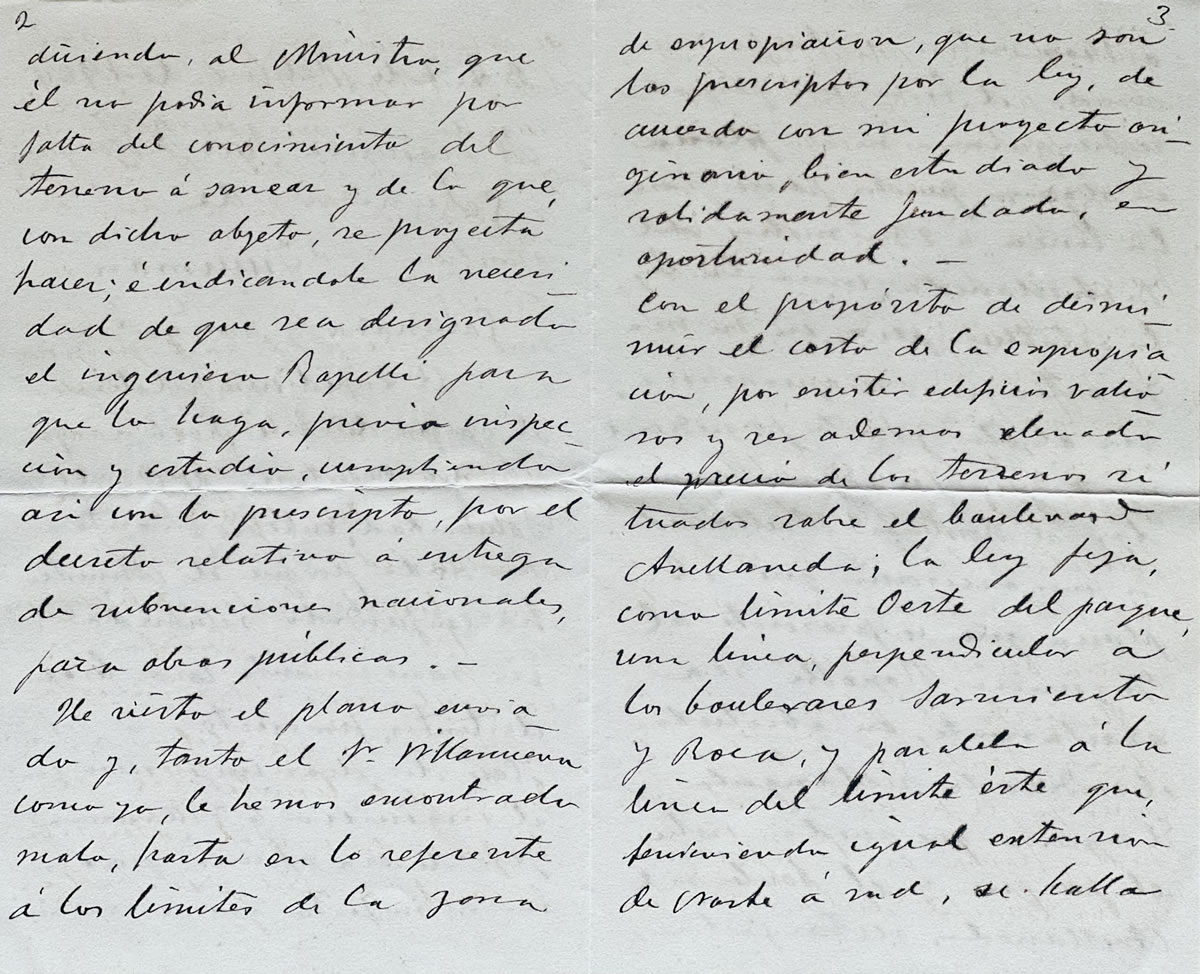 2
diciendo, al Ministro, que
él no podia informar por
falta del conocimiento del
terreno á sanear y de la que,
con dicho objeto, se proyecta
hacer; é indicandole la necesi-
dad de que sea designado
el ingeniero Rapelli para
que lo haga, previa inspec-
ción y estudio, cumpliendo
asi con lo prescripto, por el
decreto relativo á entrega
de subvenciones nacionales,
para obras públicas. —
He visto el plano envia-
do y, tanto el Sr. Villanueva
como yo, le hemos encontrado
malo, hasta en lo referente
á los límites de la zona
3
de expropiacion, que no son
los prescriptos por la ley, de
acuerdo con mi proyecto ori-
ginario, bien estudiado y
solidamente fundado, en
oportunidad. —
Con el propósito de dismi-
nuir el costo de la expropia
ción, por existir edificios valio-
sos y ser ademas elevado
el precio de los terrenos si
tuados sobre el boulevard
Avellaneda; la ley fija,
como límite Oeste del parque,
una linea, perpendicular á
los boulevares Sarmiento
y Roca, y paralela á la
linea del límite éste que,
teniendo igual extension
de norte á sud, se halla